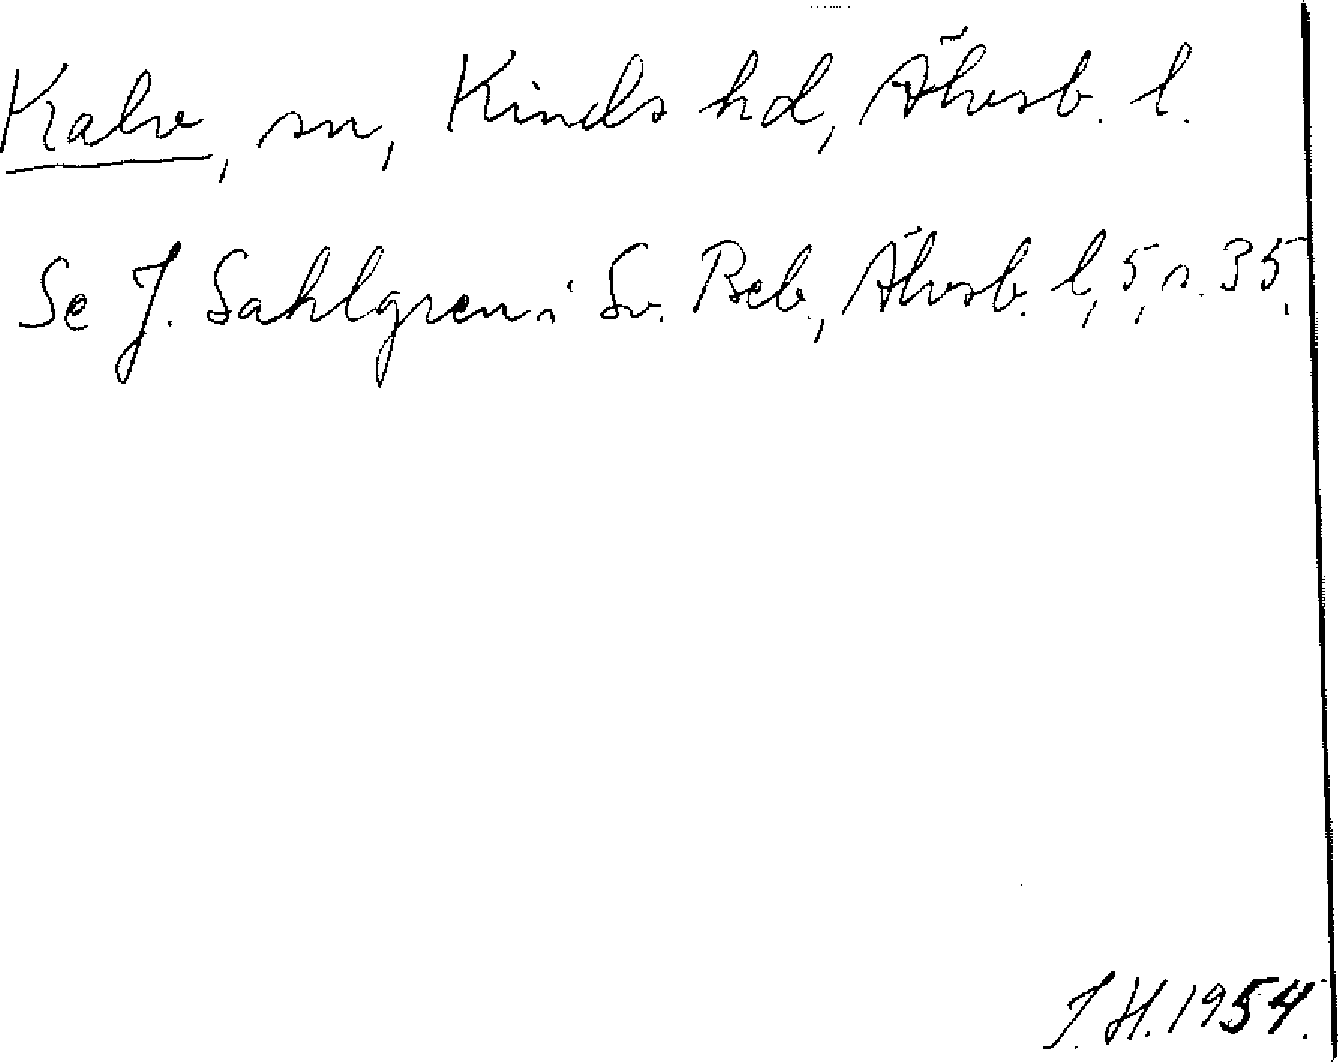 Kalv, sn, Kinds hd, Älvsb. l.
Se J. Sahlgren i Sv. Beb., Älvsb. l, 5, s. 35.
J. H. 1954.